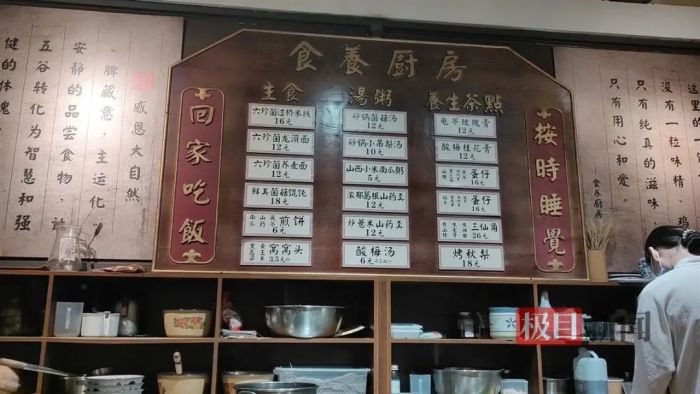 食養厨房
回家吃飯
按時睡覺
主食
六珍菌过桥米线
16元
六珍菌龙须面
12元
六珍菌荞麦面
12元
鲜美菌菇馄饨
18元
煎饼
6元
窝窝头
湯粥
砂锅菌菇汤
12元
砂锅小吊梨汤
10元
山西小米南瓜粥
5元
浓郁葛根山药羹
12元
炒薏米山药羹
12元
酸梅汤
6元
養生茶點
龟苓玫瑰膏
12元
酸梅桂花膏
12元
蛋仔
16元
蛋仔
16元
三仙角
26元
烤秋梨
18元
感恩大自然
脾藏意，主运化，
安静的品尝食物，让
五谷转化为智慧和强
健的体魄
没有一粒味精，鸡
只有纯真的滋味
只有用心和爱。
食养厨房
极目新闻